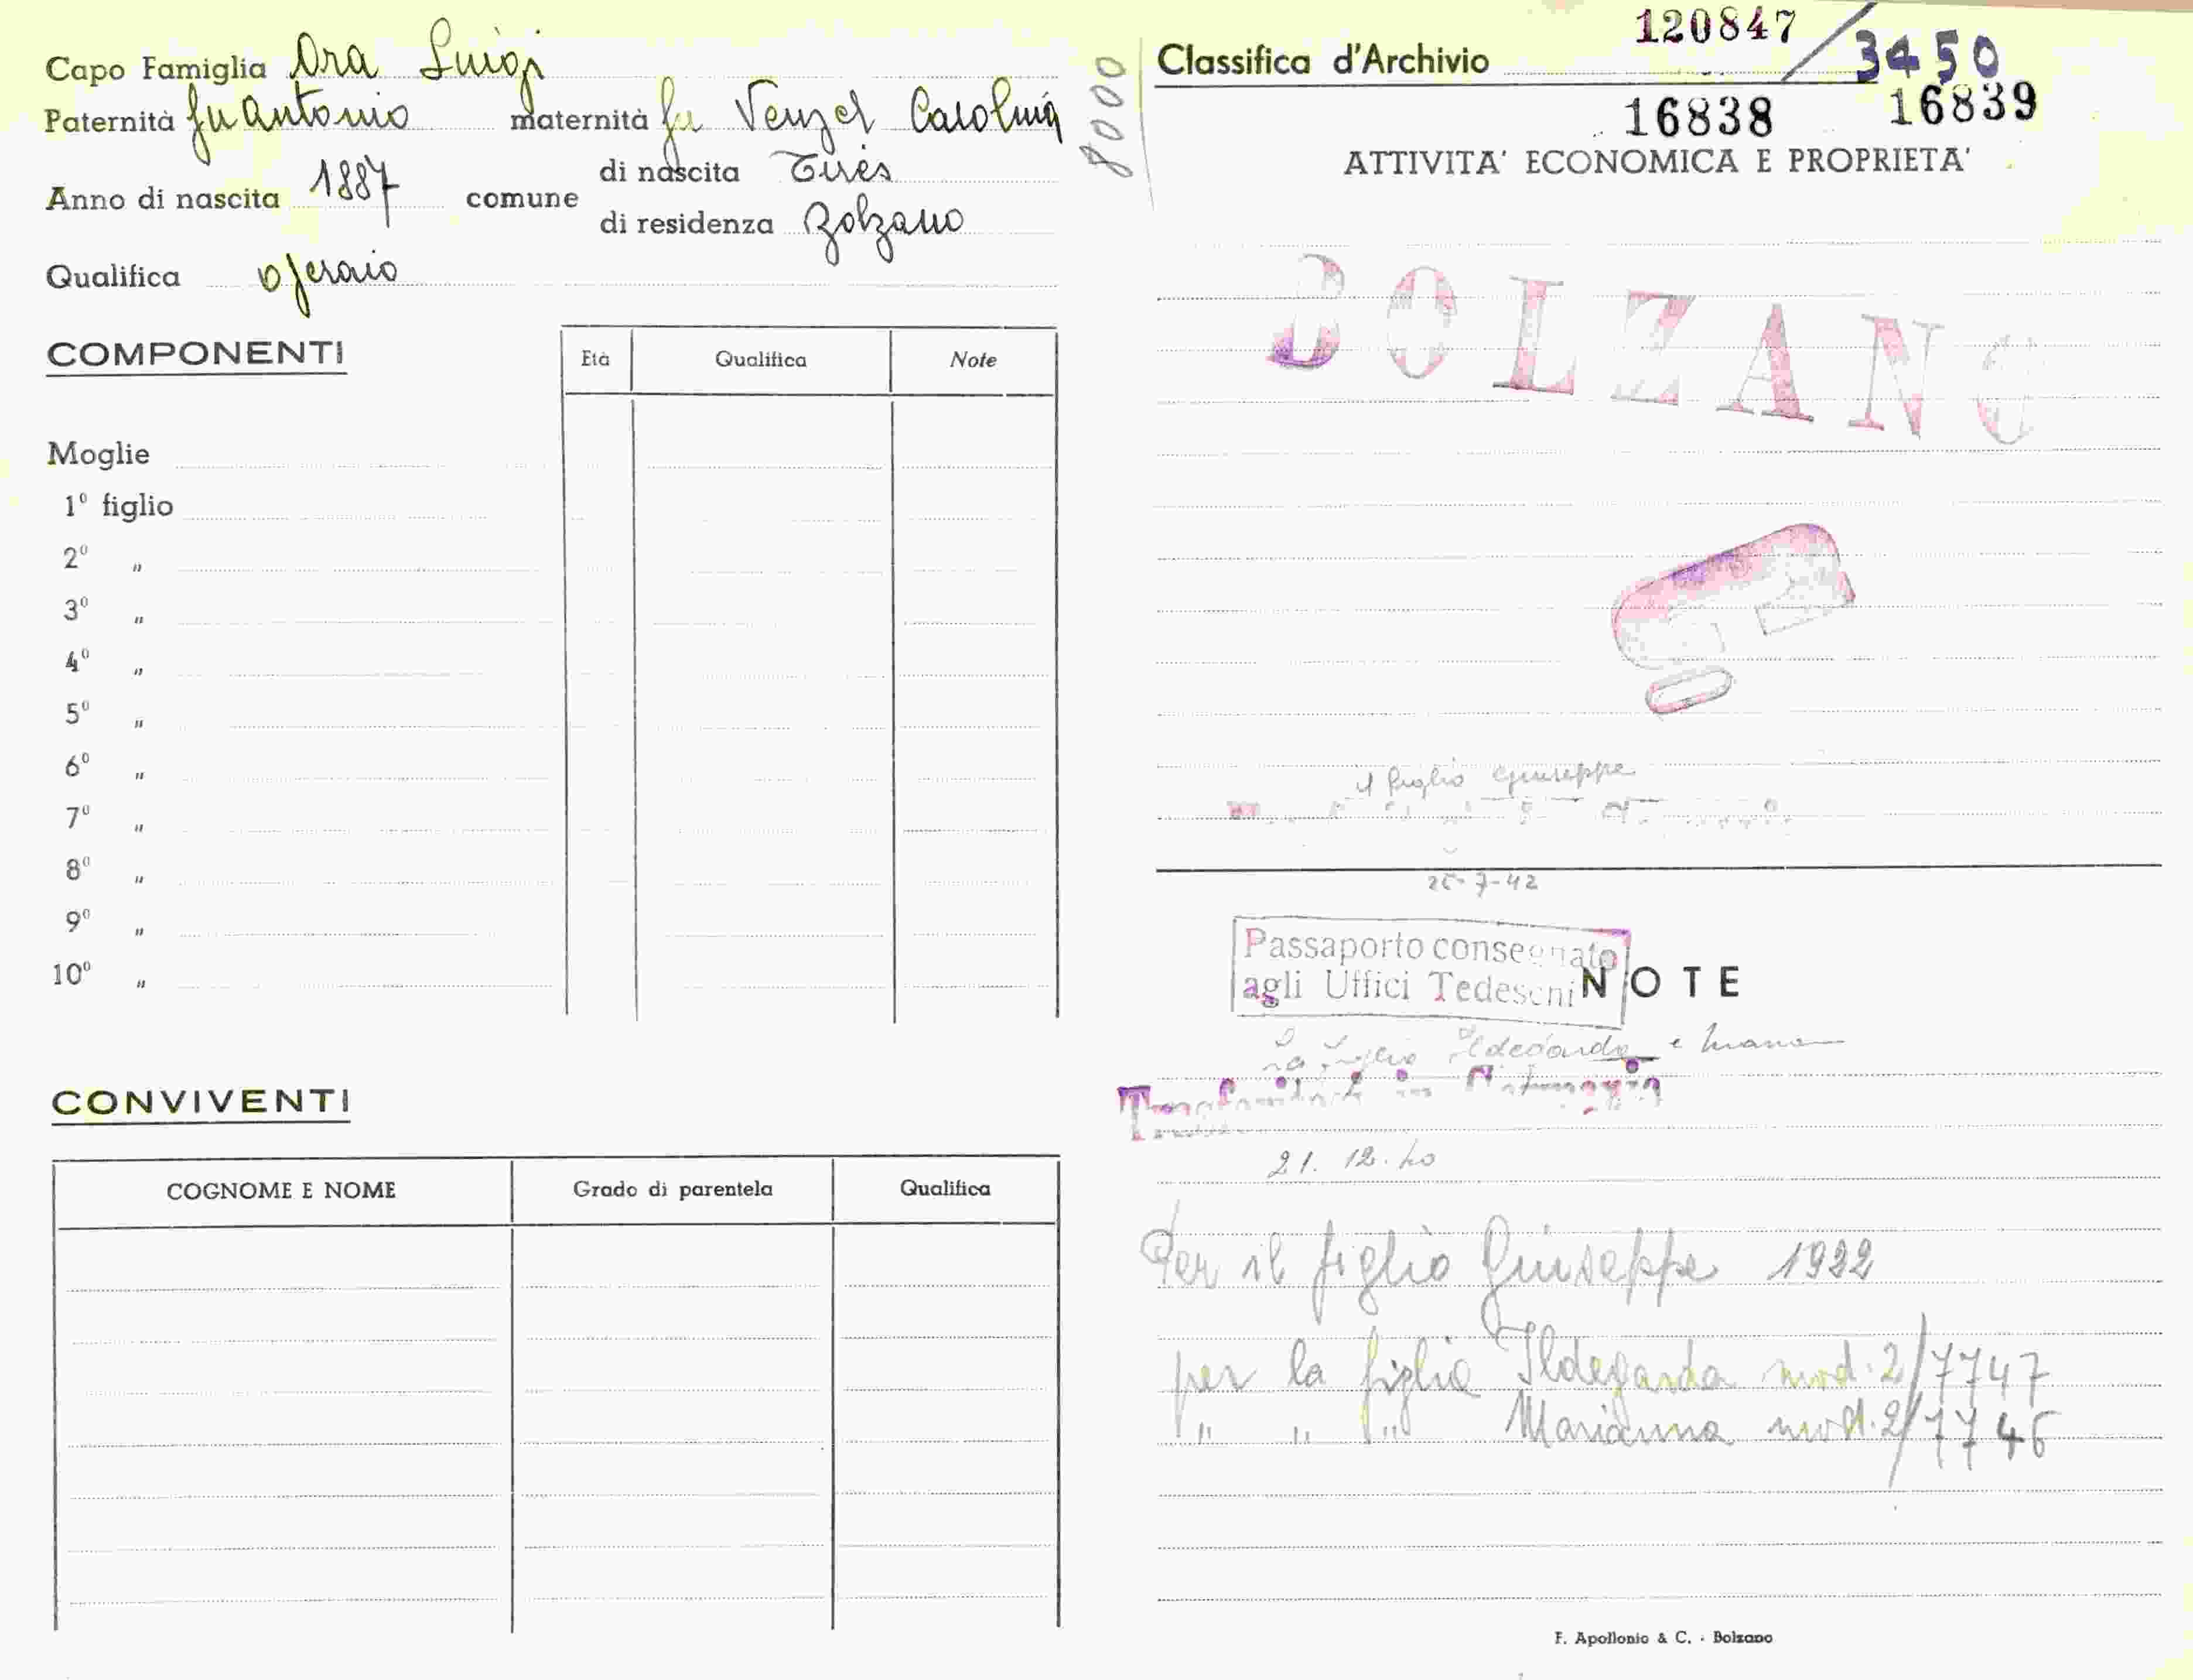 Capo Famiglia Ora Luigi
Paternità fu Antonio maternità fu Venzel Carolina
Anno di nascita 1887 comune di nascita Tires
di residenza Bolzano
Qualifica operaio
COMPONENTI
Età Qualifica Note
Moglie
1º figlio
2º "
3º "
4º "
5º "
6º "
7º "
8º "
9º "
10º "
CONVIVENTI
COGNOME E NOME Grado di parentela Qualifica
8000
120847/3450
Classifica d'Archivio
16838 16839
ATTIVITA' ECONOMICA E PROPRIETA'
BOLZANO
il figlio Giuseppe
25-7-42
Passaporto consegnato
agli Uffici Tedeschi
NOTE
La figlia Ildegarda e
Trasferito in Germania
21. 12. 40
Per il figlio Giuseppe 1922
per la figlia Ildegarda mod. 2/7747
" " " Marianna mod. 2/7746
F. Apollonio & C. - Bolzano